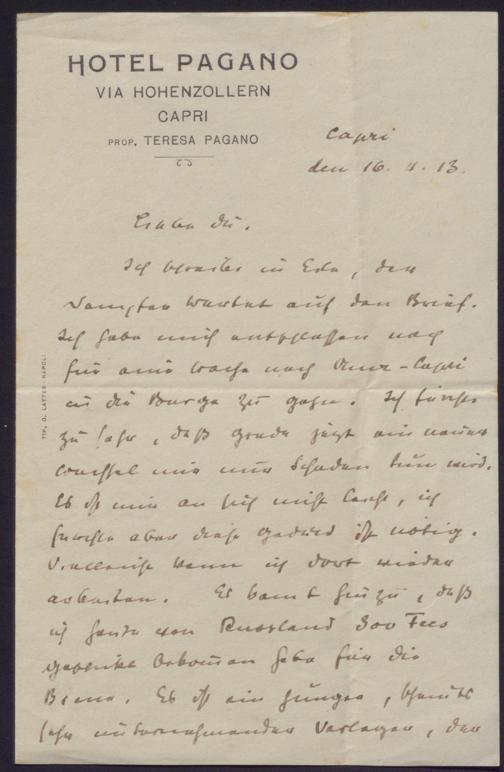 HOTEL PAGANO
VIA HOHENZOLLERN
CAPRI
PROP. TERESA PAGANO
Capri
den 16. 4. 13.
Liebe du.
Ich schreibe in Eile, der
Dampfer wartet auf den Brief.
Ich habe mich entschlossen noch
für eine Woche nach Ana-Capri
in die Berge zu gehn. Ich fürchte
zu sehr, daß grade jetzt ein neuer
Wechsel mir nur Schaden tun wird.
Es ist mir an sich nicht leicht, ich
fürchte aber diese Geduld ist nötig.
Vielleicht kann ich dort wieder
arbeiten. Es kommt hinzu, daß
ich heute von Russland 300 Frcs
geschickt bekommen habe für die
Biene. Es ist ein junger, scheints
sehr unternehmender Verleger, der
TIP. G. LATTES-NAPOLI